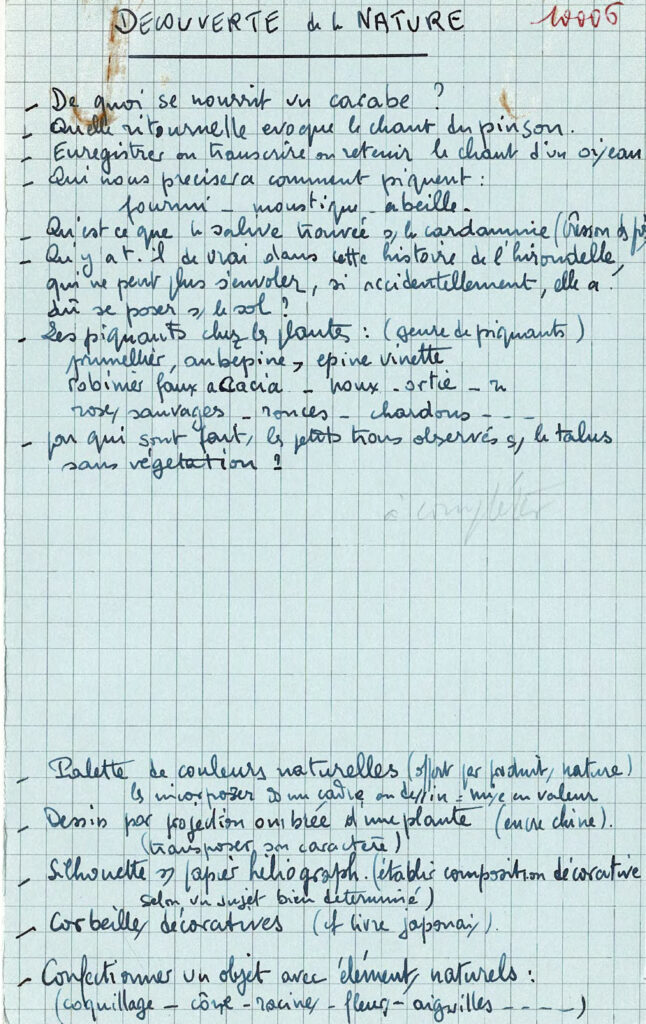 DECOUVERTE de la NATURE 10006
- De quoi se nourrit un carabe ?
- Quelle ritournelle evoque le chant du pinson.
- Enregistrer ou transcrire ou retenir le chant d'un oiseau
- Qui nous precisera comment piquent :
fourmi - moustique - abeille.
- Qu'est ce que la salive trouvée s/ le cardammine (Cresson des
- Qu'y a t. il de vrai dans cette histoire de l'hirondelle,
qui ne peut plus s'envoler, si accidentellement, elle a
dû se poser s/ le sol ?
- Les piquants chez les plantes : (genre de piquants)
prunellier, aubepine, epine vinette
robinier faux acacia - houx - ortie -
roses sauvages - ronces - chardons - - -
- par qui sont faits les petits trous observés s/ le talus
sans végetation ?
à compléter
- Palette de couleurs naturelles (offert par produits nature)
les incorposer ds un cadre ou dessin = mise en valeur
- Dessin par projection ombrée d'une plante (encre chine).
(transposer son caractère)
- Silhouette s/ papier héliograph. (établir composition décorative
selon un sujet bien déterminé)
- Corbeilles décoratives (cf livre japonais).
- Confectionner un objet avec éléments naturels :
(coquillage - cône - racines - fleurs - aiguilles - - - -)